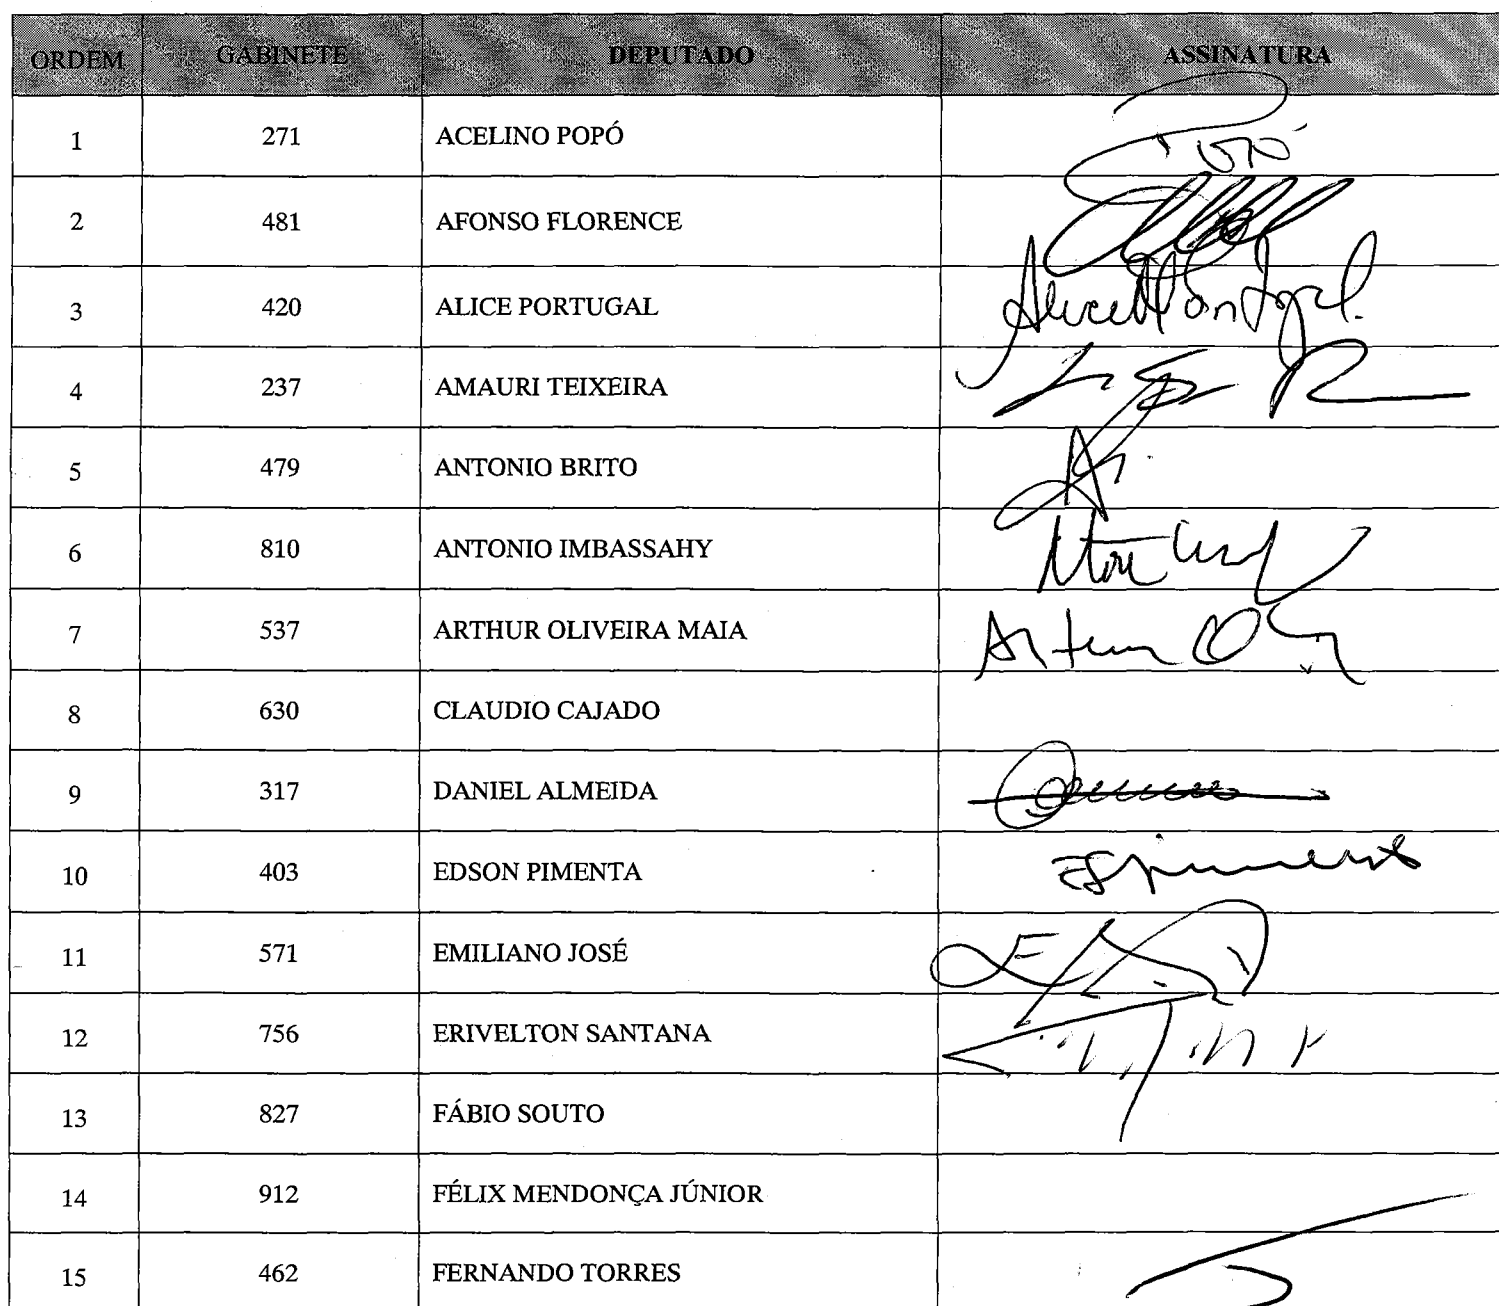 ORDEM GABINETE DEPUTADO ASSINATURA
1 271 ACELINO POPÓ Popó
2 481 AFONSO FLORENCE
3 420 ALICE PORTUGAL Alice Portugal
4 237 AMAURI TEIXEIRA
5 479 ANTONIO BRITO
6 810 ANTONIO IMBASSAHY
7 537 ARTHUR OLIVEIRA MAIA
8 630 CLAUDIO CAJADO
9 317 DANIEL ALMEIDA
10 403 EDSON PIMENTA
11 571 EMILIANO JOSÉ
12 756 ERIVELTON SANTANA
13 827 FÁBIO SOUTO
14 912 FÉLIX MENDONÇA JÚNIOR
15 462 FERNANDO TORRES